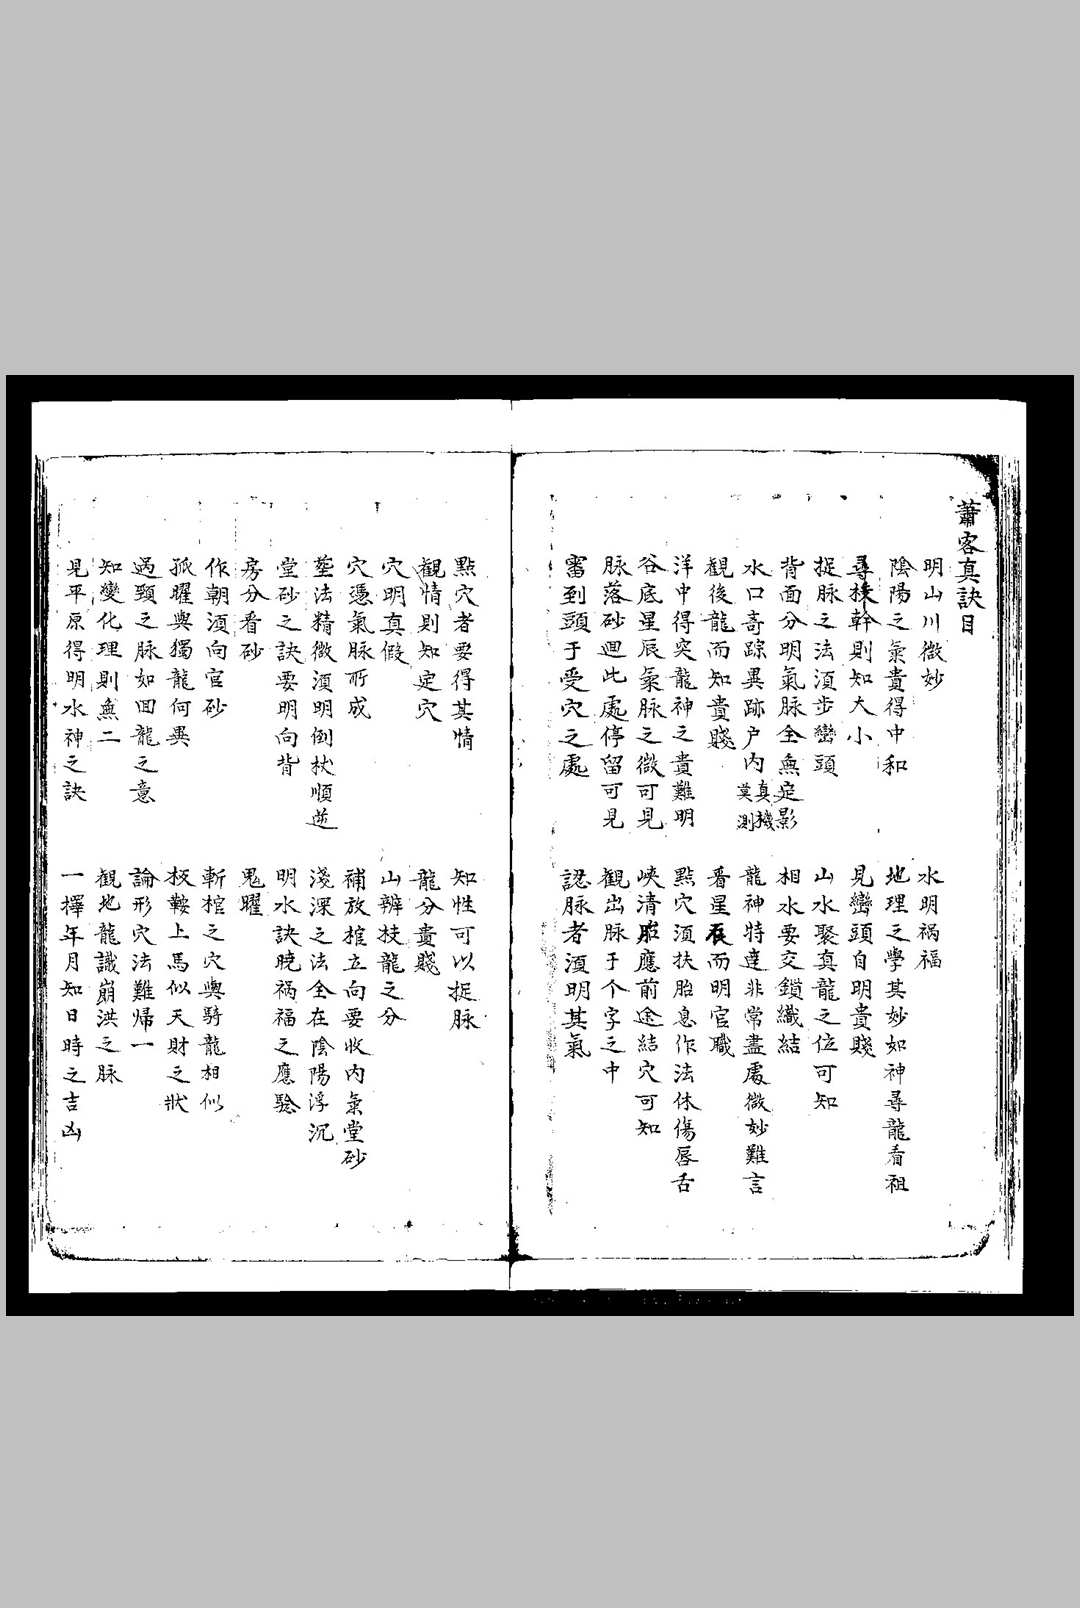 蕭客真訣目
明山川微妙　水明祸福
陰陽之氣貴得中和　地理之學其妙如神尋龍看祖
尋枝幹則知大小　見巒頭自明貴賤
捉脉之法須步巒頭　山水聚真龍之位可知
背面分明氣脉全無定影　相水要交鎖織結
水口奇踪異跡户内真機莫測　龍神特達非常盡處微妙難言
觀後龍而知貴賤　看星辰而明官職
洋中得突龍神之貴難明　點穴須扶胎息作法休傷唇舌
谷底星辰氣脉之微可見　峽清應前途結穴可知
脉落砂迴此處停留可見　觀出脉于个字之中
審到頭于受穴之處　認脉者須明其氣
點穴者要得其情　知性可以捉脉
觀情則知定穴　龍分貴賤
穴明真假　山辨枝龍之分
穴憑氣脉所成　補放棺立向要收内氣堂砂
塟法精微須明倒杖順逆　淺深之法全在陰陽浮沉
堂砂之訣要明向背　明水訣曉祸福之應驗
房分看砂　鬼曜
作朝須向官砂　斬棺之穴與騎龍相似
孤曜與獨龍何異　板鞍上馬似天財之狀
過頸之脉如回龍之意　論形穴法難歸一
知變化理則無二　觀地龍識崩洪之脉
見平原得明水神之訣　一擇年月知日時之吉凶